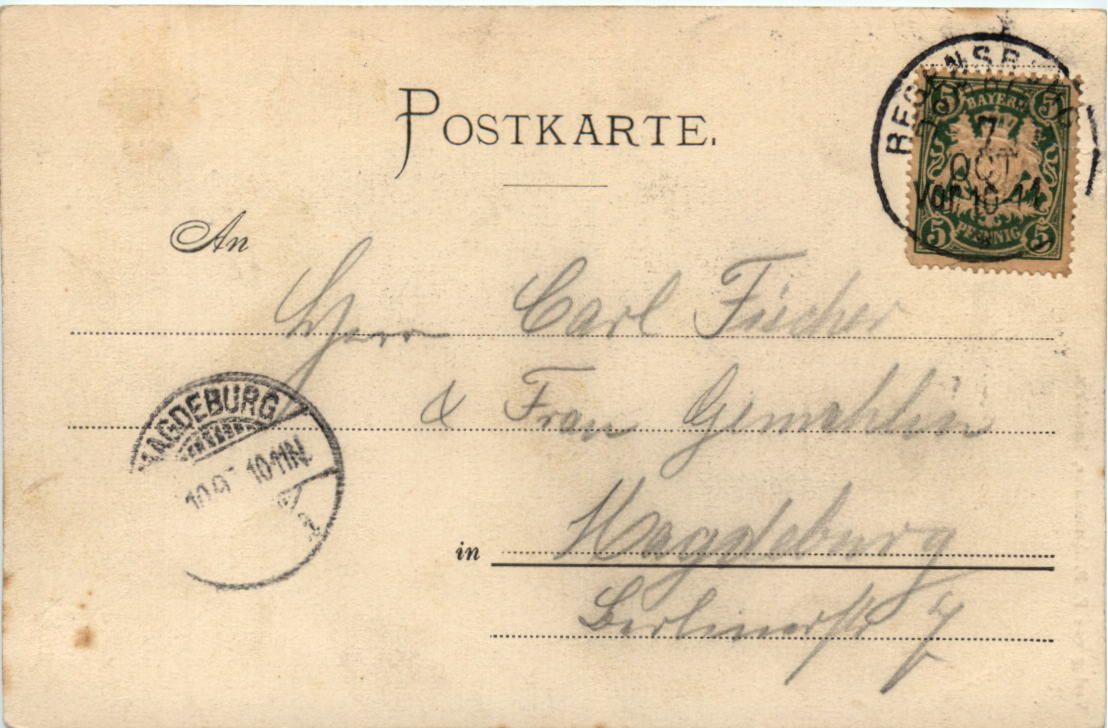 POSTKARTE.
REGENSBURG
7
OCT
Vor. 10-11
5 BAYERN 5
5 PFENNIG 5
An
Herrn Carl Fischer
& Frau Gemahlin
MAGDEBURG
10 11N.
in Magdeburg
Berlinerstr 7